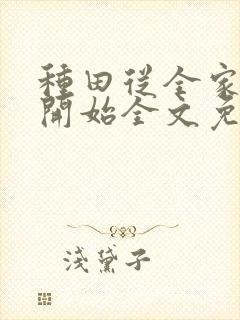 種田從全家
開始全文免
淺黛子